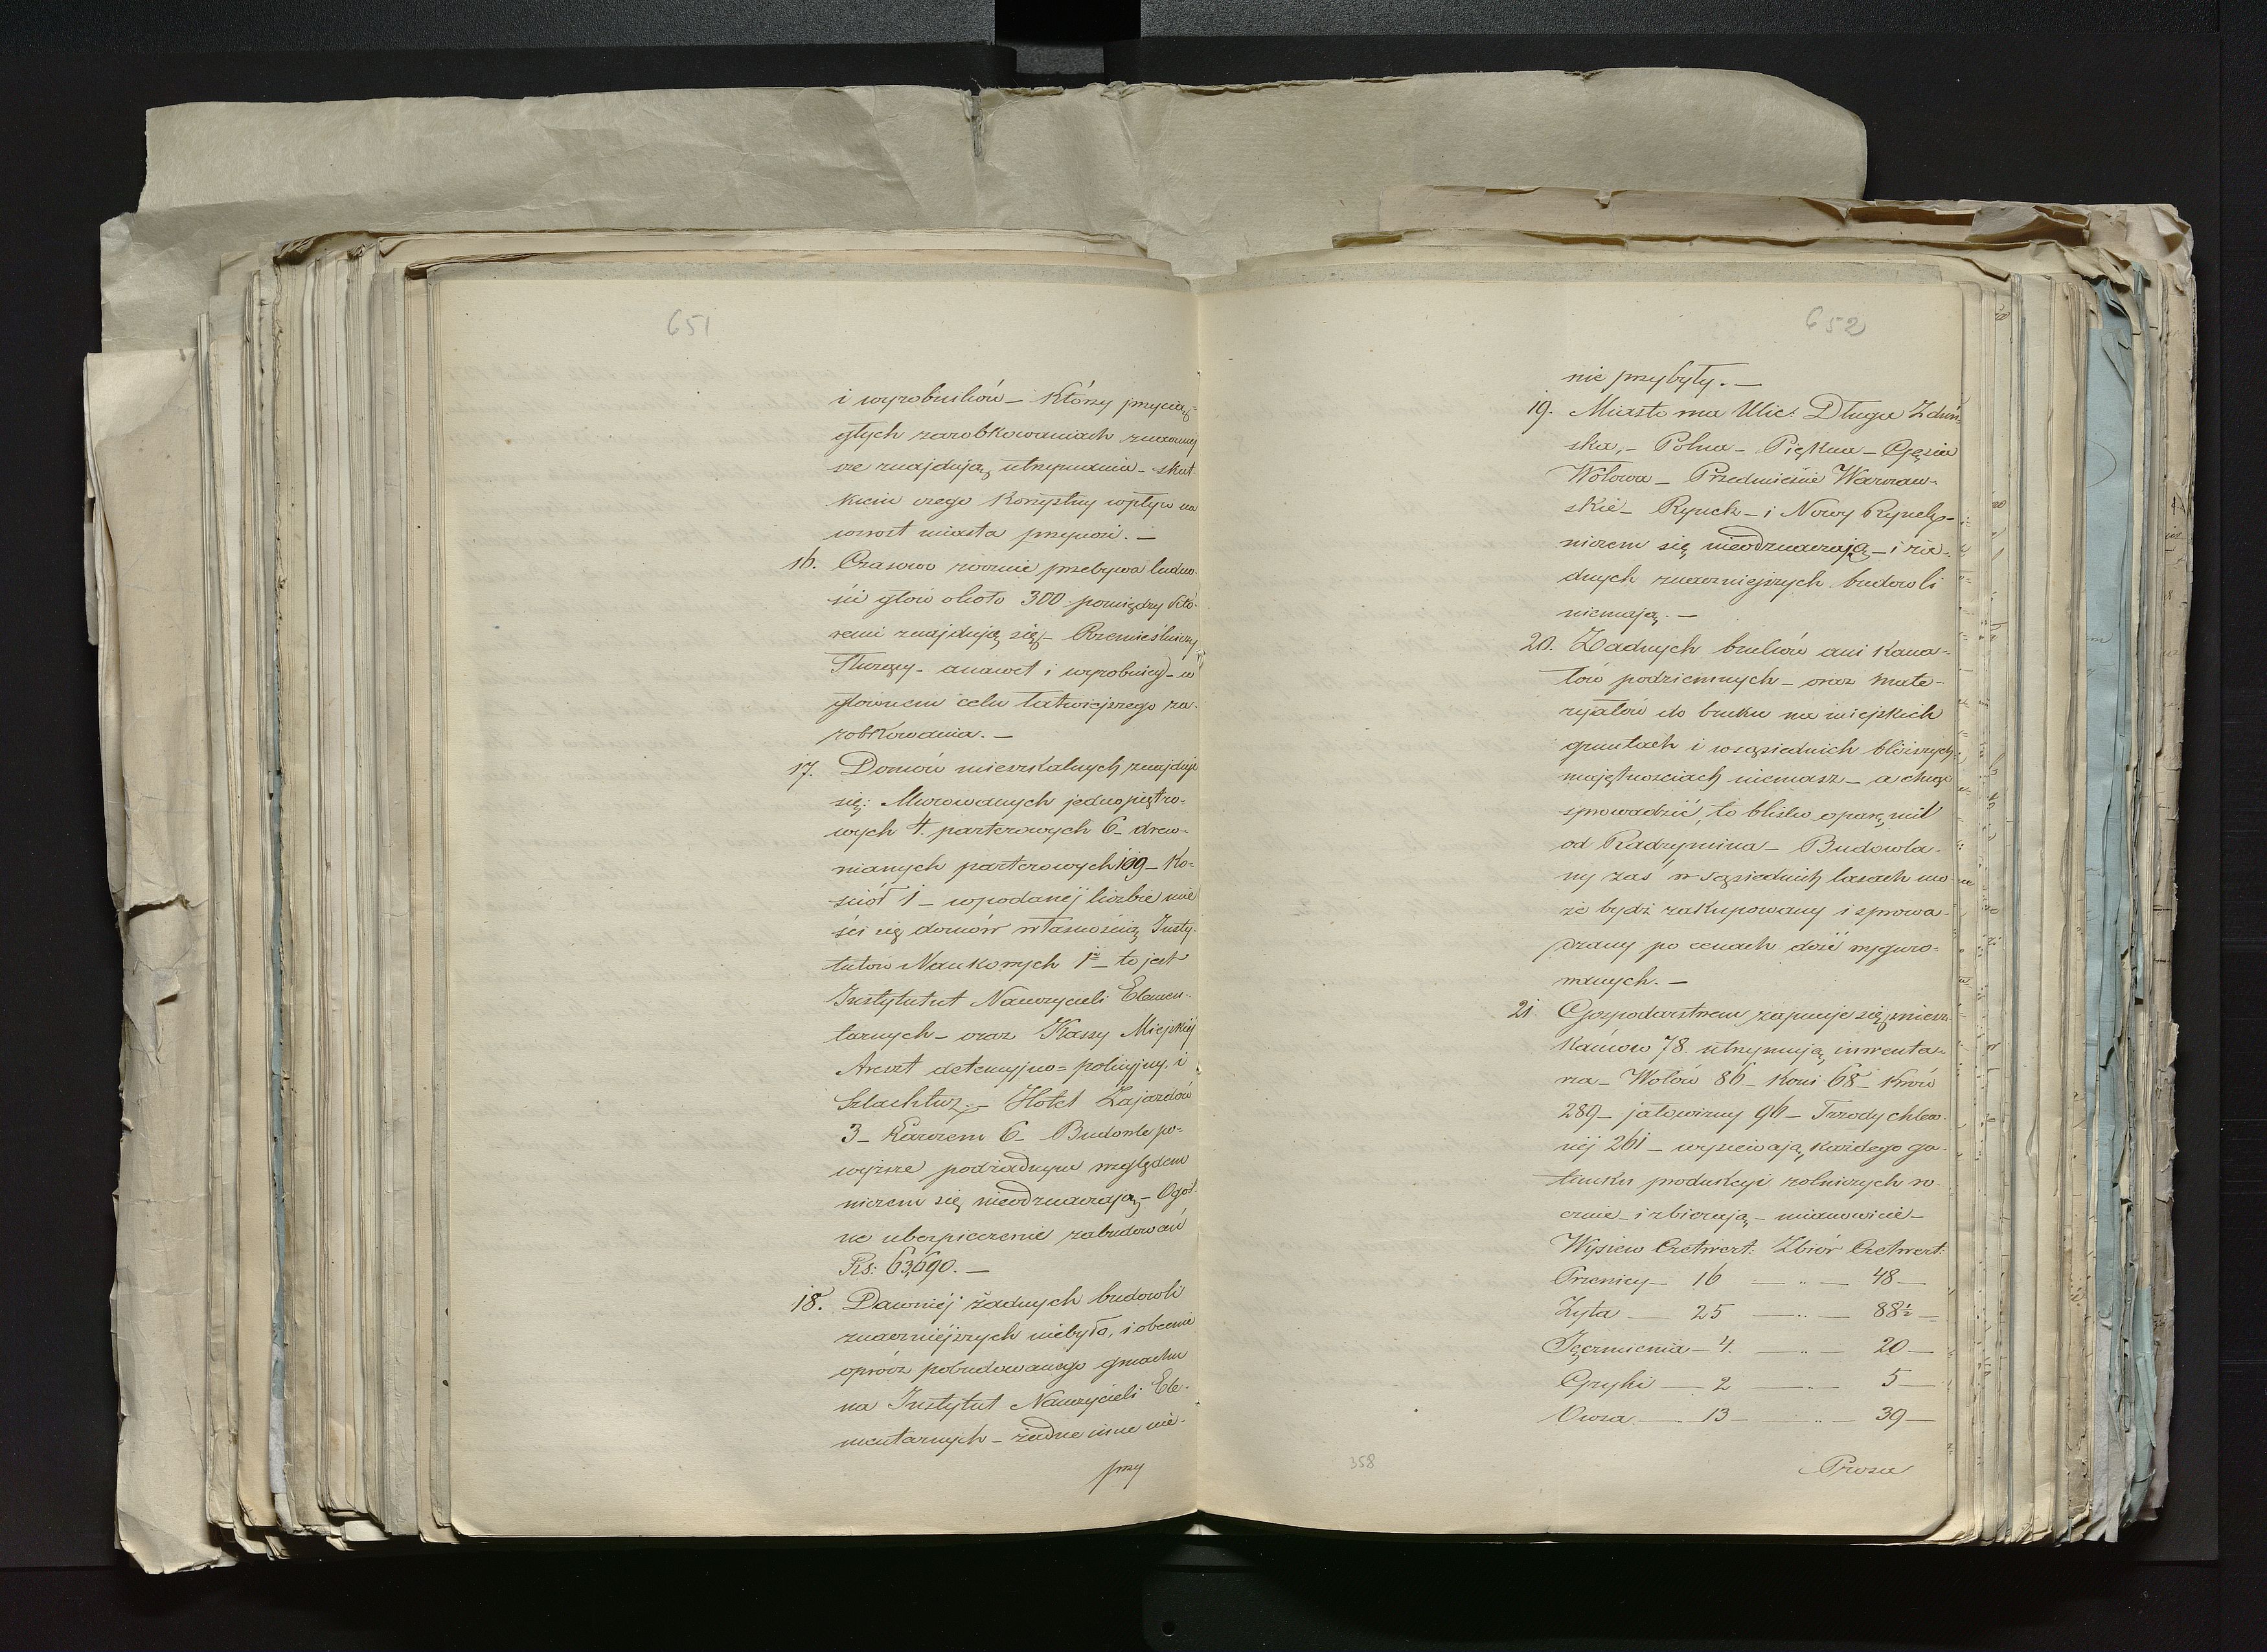 651
i wyrobników – Którzy przyciąg=
głych zarobkowaniach znaczniej
sze znajdują utrzymania – skut-
kiem czego Korzystny wpływ na
wzrost miasta przynosi. –
16. Czasowo rocznie przebywa ludno-
ści głów około 300 pomiędzy któ-
remi znajdują się – Rzemieślniczy
Słuzący – anawet i wyrobnicy – w
głównem celu łatwiejszego za-
robkowania. –
17. Domów mieszkalnych znajduje
się: Murowanych jednopiętro-
wych 4. parterowych 6 – drew-
nianych parterowych 109 – Ko-
ściół 1 – wpodanej liczbie mie
ści się domów własnością Insty-
tutów Naukowych 1 – to jest
Instytutut Nauczycieli Elemen-
tarnych – oraz Kassy Miejskiej
Areszt detencyjno=policyjny, i
Szlachtuz – Hotel Zajazdów
3 – Karczem 6 – Budowle po-
wyższe podżadnym względem
niczem się nieodznaczają – Ogól-
ne ubezpieczenie zabudowań
Rs: 63,690. –
18. Dawniej żadnych budowli
znaczniejszych niebyło, i obecnie
oprócz pobudowanego gmachu
na Instytut Nauczycieli Ele-
mentarnych – żadne inne nie-
przy
652
nie przybyły. –
19. Miasto ma Ulic: Długa Zduń-
ska, – Polna – Piękna – Gęsia
Wołowa – Przedmieście Warszaw-
skie – Rynek – i Nowy Rynek –
niczem się nieodznaczają – i ża-
dnych znaczniejszych budowli
niemają. –
20. Zadnych bruków ani Kana-
łów podziemnych – oraz mate-
ryałów do bruku na miejskich
gruntach i wsąsiednich bliższych
majętnościach niemasz – a chcąc
sprowadzić, to blisko o parę mil
od Radzymina – Budowla-
ny zaś w sąsiednich lasach mo-
że bydź zakupowany i sprowa-
dzany po cenach dość wyguro-
wanych. –
21 Gospodarstwem zajmuje się miesz-
kańców 78. utrzymują inwenta-
rza – Wołów 86 – Koni 68 – Krów
289 – jałowizny 96 – Trzody chlew-
nej 261 – wysiewają każdego ga-
tunku produkcyi rolniczych ro-
cznie – i zbierają – mianowicie –
Wysiew Czetwert: Zbiór Czetwert:
Pszenicy – 16 — „ — 48 –
Zyta — 25 — „ — 88½ –
Jęczmienia – 4. — „ — 20 –
Gryki — 2 — „ — 5 –
Owsa — 13 — „ — 39 –
Prosa
358